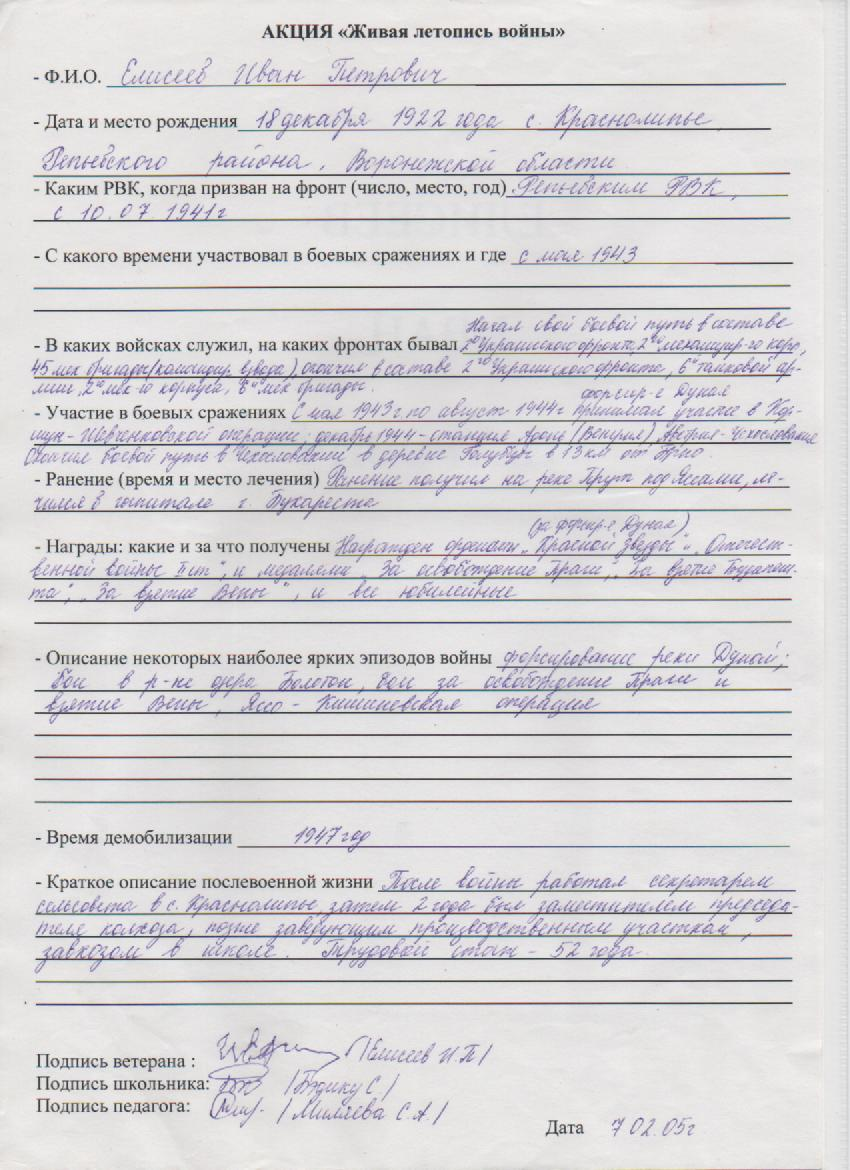 АКЦИЯ «Живая летопись войны»
- Ф.И.О. Елисеев Иван Петрович
- Дата и место рождения 18 декабря 1922 года с. Краснолипье,
Репьёвского района, Воронежской области
- Каким РВК, когда призван на фронт (число, место, год) Репьевским РВК,
с 10.07 1941г
- С какого времени участвовал в боевых сражениях и где с мая 1943
Начал свой боевой путь в составе
- В каких войсках служил, на каких фронтах бывал 2го Украинского фронта, 2го механизир-го корп,
45 мех бригады (командир взвода), окончил в составе 2го Украинского фронта, 6й танковой ар-
мии, 2го мех-го корпуса, мех бригады.
форсир-е Дуная
- Участие в боевых сражениях С мая 1943г. по август 1944г принимал участие в Кор-
сунь-Шевченковской операции, декабрь 1944 - станция (Венгрия), Австрия-Чехословакия
Окончил боевой путь в Чехословакии в деревне в 13 км от Брно.
- Ранение (время и место лечения) Ранение получил на реке Прут под Яссами, ле-
чился в госпитале г. Бухареста
(за форсир-е Дуная)
- Награды: какие и за что получены Награжден орденами „Красной Звезды" и „Отечест-
венной войны II ст", и медалями „За освобождение Праги", „За взятие Будапеш-
та", „За взятие Вены", и все юбилейные
- Описание некоторых наиболее ярких эпизодов войны форсирование реки Дунай;
бои в р-не озера Болотон, бои за освобождение Праги и
взятие Вены, Ясско - Кишиневская операция
- Время демобилизации 1947 год
- Краткое описание послевоенной жизни После войны работал секретарем
сельсовета в с. Краснолипье, затем 2 года был заместителем председа-
теля колхоза, позже заведующим производственным участком,
завхозом в школе. Трудовой стаж - 52 года.
Подпись ветерана : /Елисеев И.П/
Подпись школьника: С./
Подпись педагога: /Миляева С.А./
Дата 7 02.05г